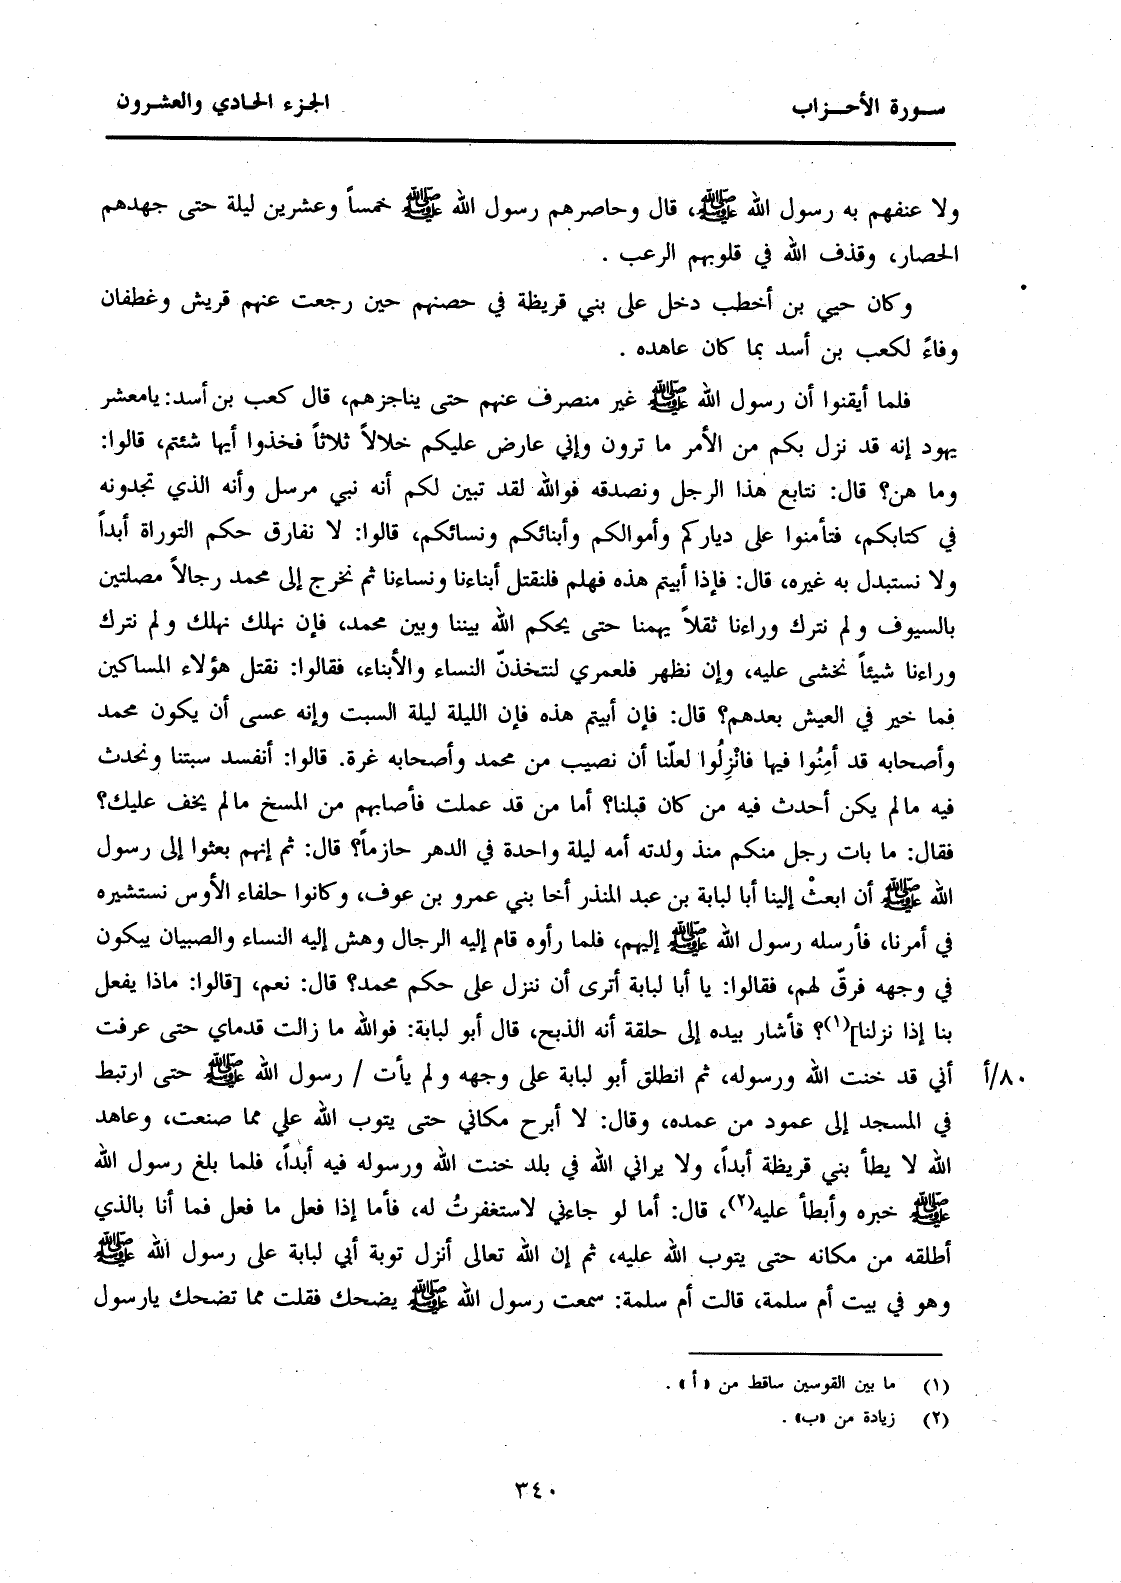 سورة الأحزاب
الجزء الحادي والعشرون
ولا عنفهم به رسول الله ﷺ، قال وحاصرهم رسول الله ﷺ خمساً وعشرين ليلة حتى جهدهم
الحصار، وقذف الله في قلوبهم الرعب .
وكان حيي بن أخطب دخل على بني قريظة في حصنهم حين رجعت عنهم قريش وغطفان
وفاءً لكعب بن أسد بما كان عاهده .
فلما أيقنوا أن رسول الله ﷺ غير منصرف عنهم حتى يناجزهم، قال كعب بن أسد: يامعشر
يهود إنه قد نزل بكم من الأمر ما ترون وإني عارض عليكم خلالاً ثلاثاً فخذوا أيها شئتم، قالوا:
وما هن؟ قال: نتابع هذا الرجل ونصدقه فوالله لقد تبين لكم أنه نبي مرسل وأنه الذي تجدونه
في كتابكم، فتأمنوا على دياركم وأموالكم وأبنائكم ونسائكم، قالوا: لا نفارق حكم التوراة أبداً
ولا نستبدل به غيره، قال: فإذا أبيتم هذه فهلم فلنقتل أبناءنا ونساءنا ثم نخرج إلى محمد رجالاً مصلتين
بالسيوف ولم نترك وراءنا ثقلاً يهمنا حتى يحكم الله بيننا وبين محمد، فإن نهلك نهلك ولم نترك
وراءنا شيئاً نخشى عليه، وإن نظهر فلعمري لنتخذنّ النساء والأبناء، فقالوا: نقتل هؤلاء المساكين
فما خير في العيش بعدهم؟ قال: فإن أبيتم هذه فإن الليلة ليلة السبت وإنه عسى أن يكون محمد
وأصحابه قد أمِنُوا فيها فانْزِلُوا لعلّنا أن نصيب من محمد وأصحابه غرة. قالوا: أنفسد سبتنا ونحدث
فيه مالم يكن أحدث فيه من كان قبلنا؟ أما من قد عملت فأصابهم من المسخ مالم يخف عليك؟
فقال: ما بات رجل منكم منذ ولدته أمه ليلة واحدة في الدهر حازماً؟ قال: ثم إنهم بعثوا إلى رسول
الله ﷺ أن ابعثْ إلينا أبا لبابة بن عبد المنذر أخا بني عمرو بن عوف، وكانوا حلفاء الأوس نستشيره
في أمرنا، فأرسله رسول الله ﷺ إليهم، فلما رأوه قام إليه الرجال وهش إليه النساء والصبيان يبكون
في وجهه فرقّ لهم، فقالوا: يا أبا لبابة أترى أن ننزل على حكم محمد؟ قال: نعم، [قالوا: ماذا يفعل
بنا إذا نزلنا](١)؟ فأشار بيده إلى حلقة أنه الذبح، قال أبو لبابة: فوالله ما زالت قدماي حتى عرفت
أني قد خنت الله ورسوله، ثم انطلق أبو لبابة على وجهه ولم يأت / رسول الله ﷺ حتى ارتبط
٨٠/أ
في المسجد إلى عمود من عمده، وقال: لا أبرح مكاني حتى يتوب الله علي مما صنعت، وعاهد
الله لا يطأ بني قريظة أبداً، ولا يراني الله في بلد خنت الله ورسوله فيه أبداً، فلما بلغ رسول الله
ﷺ خبره وأبطأ عليه(٢)، قال: أما لو جاءني لاستغفرتُ له، فأما إذا فعل ما فعل فما أنا بالذي
أطلقه من مكانه حتى يتوب الله عليه، ثم إن الله تعالى أنزل توبة أبي لبابة على رسول الله ﷺ
وهو في بيت أم سلمة، قالت أم سلمة: سمعت رسول الله ﷺ يضحك فقلت مما تضحك يارسول
(١) ما بين القوسين ساقط من «أ» .
(٢) زيادة من «ب» .
٣٤٠